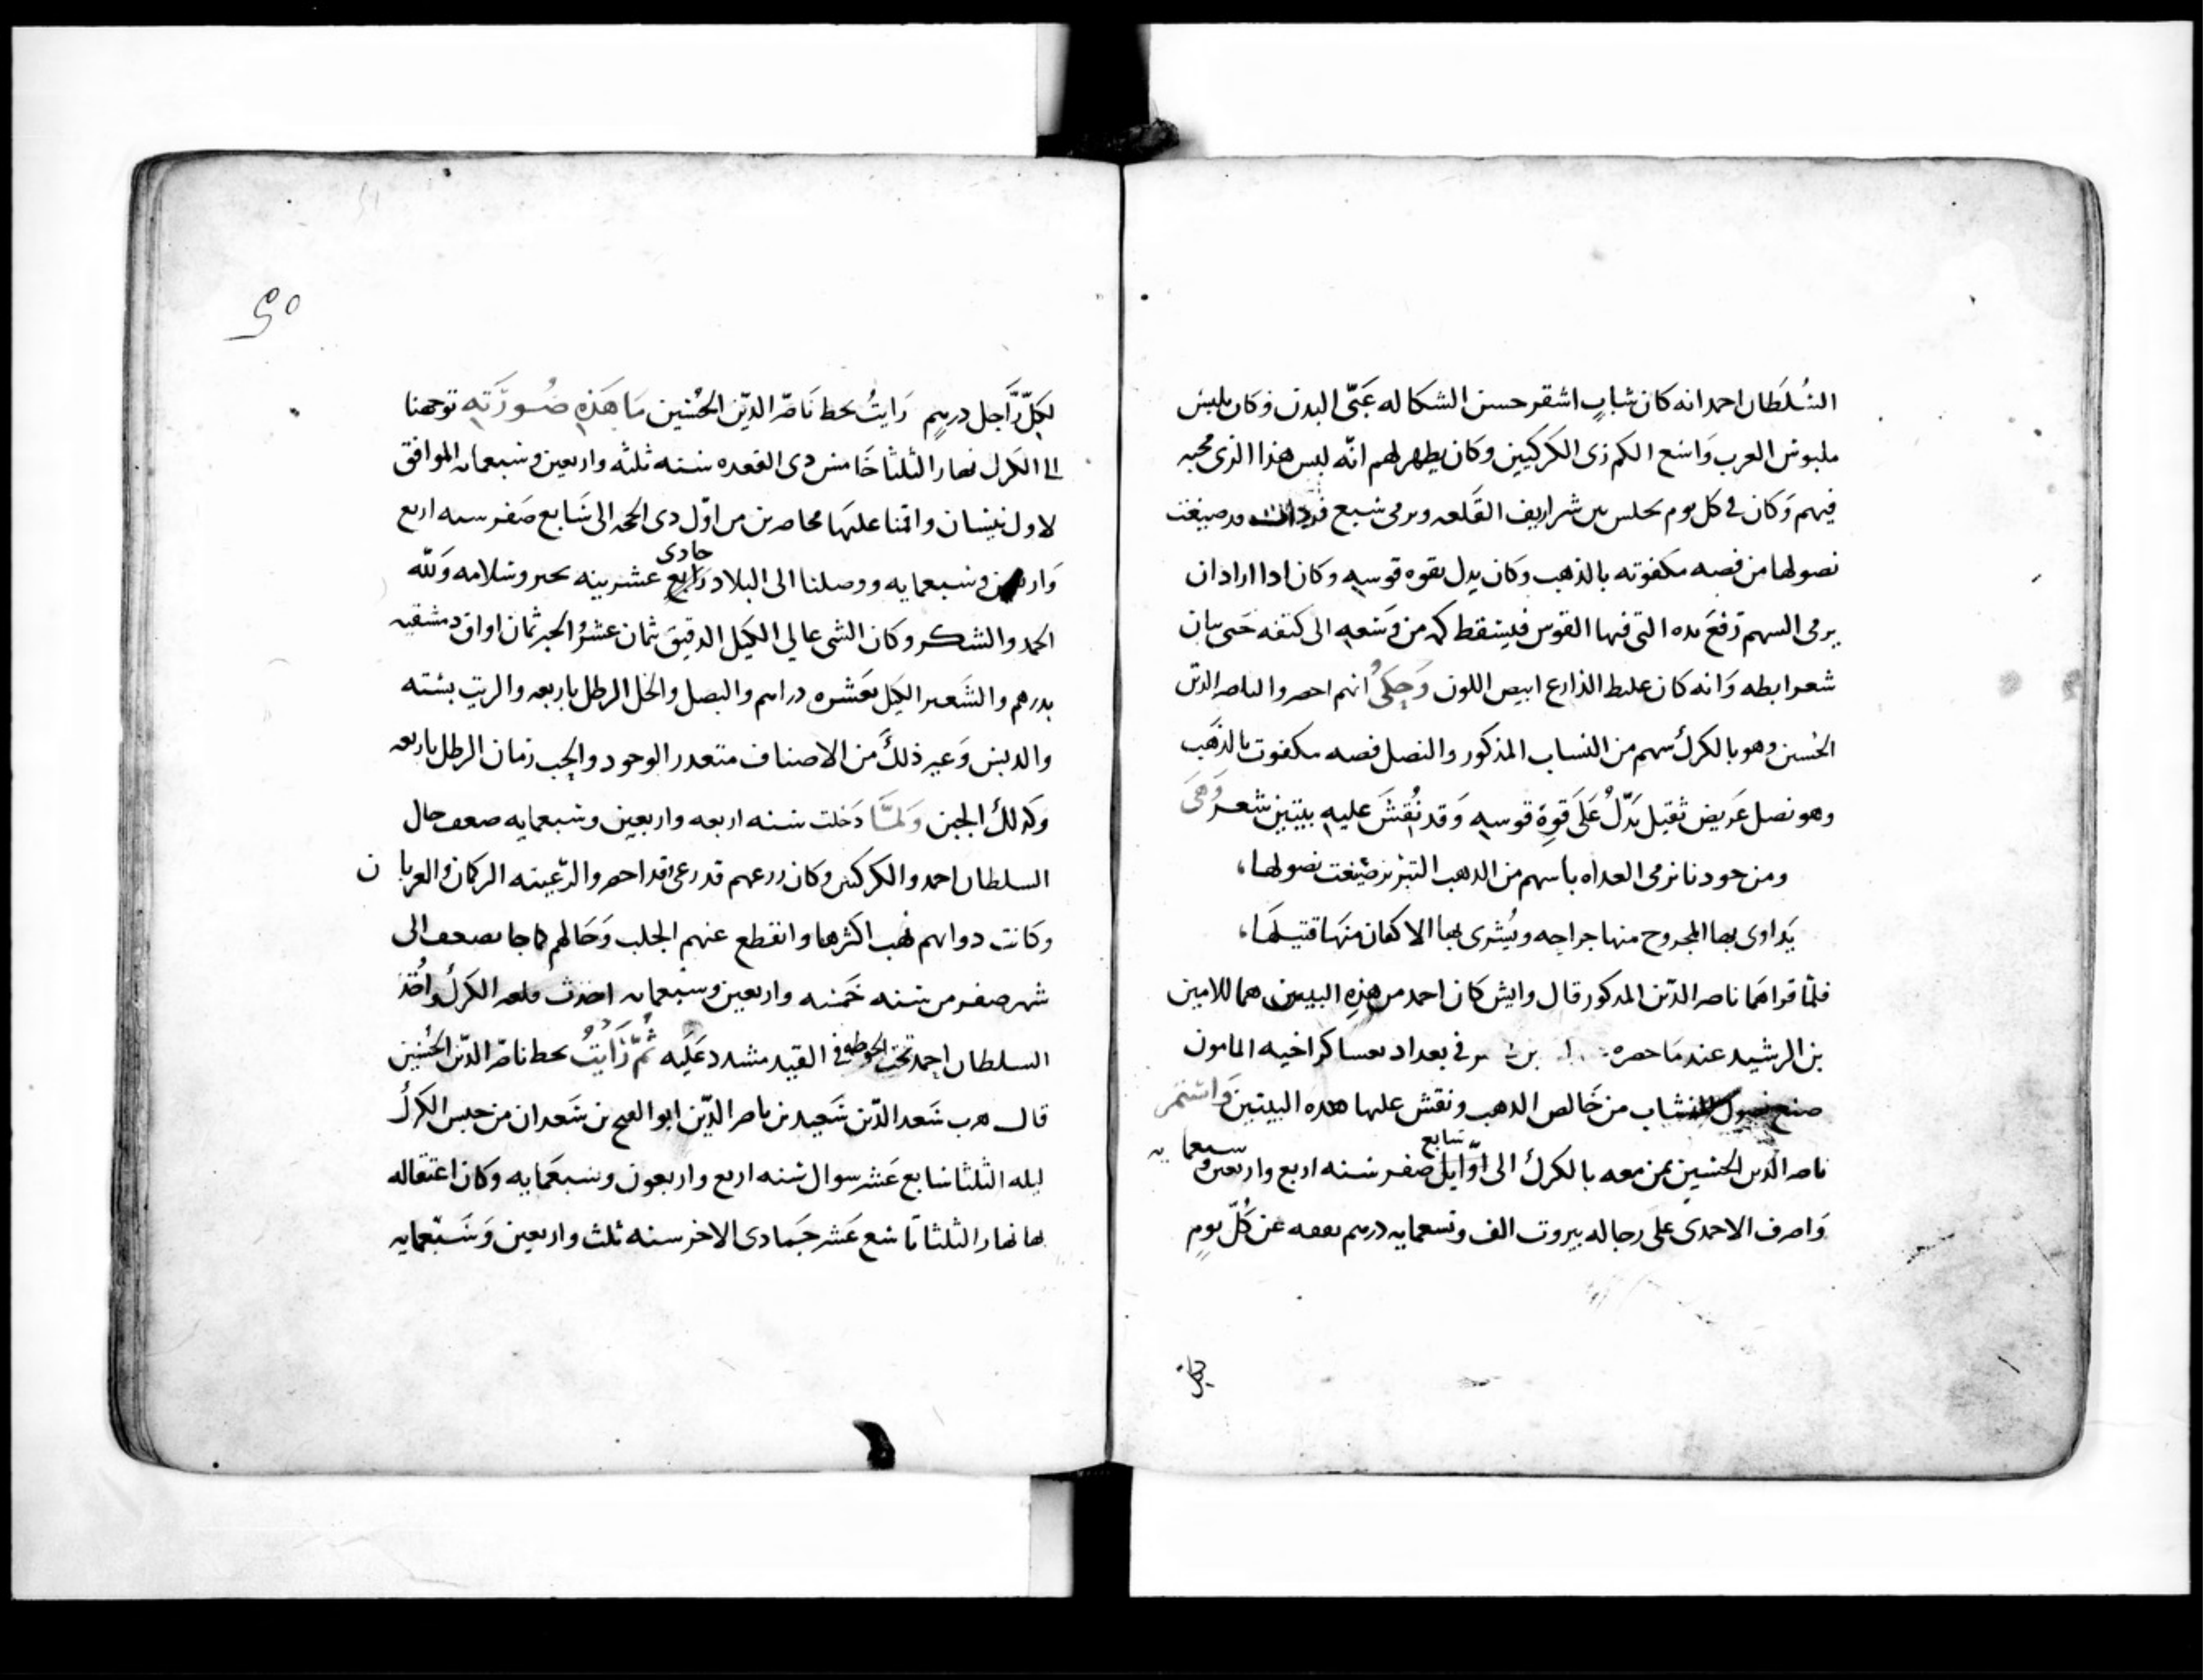 السُلطَان احمد انه كان شاب اشقر حسن الشكاله عَبىّ البدن وكان يلبس
ملبوس العرب وَاسع الكم زى الكركيين وكان يظهر لهم انّه لبس هذا الذى محبه
فيهم وَكان فى كل يوم يجلس بين شراريف القَلعه ويرمى سبع فردات قد صيغت
نصولها من فضه مكفوته بالذهب وكان يدل بقوه قوسهِ وكان اذا اراد ان
يرمى السهم رَفعَ يده التى فيها القوس فيسقط كمه من وَسعهِ الى كتفه حَتى يبان
شعر ابطه وَانه كان غليط الذارع ابيض اللون وَحكىُ انهم احضروا لناصر الدين
الحسين وهو بالكرك سهم من النساب المذكور والنصل فضه مكفوت بالذهَب
وهو نصل عَريض ثقيل يَدّلُ عَلَى قوةِ قوسهِ وَقد نُقشَ عليهِ بيتين شعر وَهىَ
ومن جودنا نرمى العداه باسهم من الذهب التبر نر صيغت نصولها،
يَداوى بها المجروح منها جراحه ويُشرى بها الاكفان منهَا قتيلهَا،
فلمّا قراهَما ناصر الدّين المذكور قال وايش كان احمد من هذِهِ البيتين هما للامين
بن الرشيد عند مَا حصره فى بغداد بعساكر اخيه المامون
صنع نصول النشاب من خَالص الذهب ونقش عليها هذه البيتين وَاستمر
ناصر الدين الحسين بمن معه بالكرك الى اوّايل سَابع صفر سنه اربع واربعين وسبعمايه
وَاصرف الاحمدى عَلَى رجاله بيروت الف وتسعمايه درهم نفقه عن كُلّ يومٍ
لكلِ رَّاجل درهمٍ رَايتُ بخط نَاصّر الدّين الحُسَين مَا هَذهِ صُورَتَهِ توجهنا
الى الكرك نهار الثلثا خَامس دى القعده سَنه ثلثه واربعين وسبعمايه الموافق
لاول نيسَان واقمنا عليهَا محاصرين من اوّل دى الحجه الى سَابع صَفر سنه اربع
وَاربعين وسبعمايه ووصلنا الى البلاد رَابع حادى عشرينه بخير وسَلامه وَللّه
الحمد والشكر وكان الشى عالى الكيَل الدقيق ثمان عشرُ الخبز ثمان اواق دمشقيه
بدرهم والشَعير الكيَل بعَشره دراهم والبصل والخل الرطل باربعه والزيت بسته
والدبس وَغير ذلكَ من الاصناف متعدر الوجود والحب رمان الرطل باربعه
وَكدلك الجبن وَلمَّا دَخلت سَنه اربعه واربعين وسَبعمايه ضعف حال
السلطان احمد والكركيين وكان زرعهم قد رعى وقد احصروا الرّعيته التركمان والعربان
وكانت دوابهم نُهب اكثرها وانقطع عنهم الجلب وَحَالهم كما جا بضعف الى
شهر صفر من سَنه خَمسَه واربعين وسَبعمايه اخذت قلعه الكرك واُخذ
السلطان احمد تحت الحوطه فى القيد مشدد عَليَه ثُمَّ رَايتُ بخط ناصّر الدّين الحُسَين
قال هرب سَعد الدّين سَعيد بن ناصر الدّين ابو الفتح بن سَعدان من حبس الكرك
ليله الثلثا سَابع عَشر سوال سَنه اربع واربعون وسَبعَمايه وكان اعتقاله
بها نهار الثلثا تاسَع عَشر جَمادى الاخر سنه ثلث واربعين وَسَبّعمايه